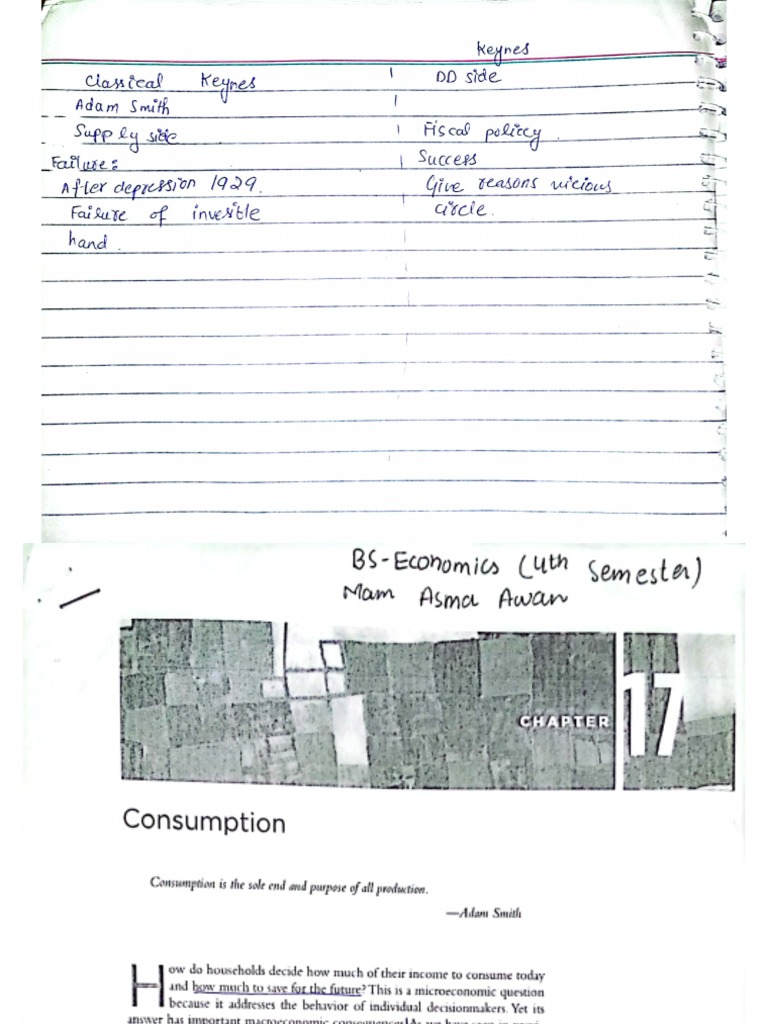 Keynes
Classical Keynes | DD side
Adam Smith |
Supply side | Fiscal policcy.
Failure: | Success
After depression 1929. Give reasons vicious
Failure of invesible circle.
hand.
BS-Economics (4th Semester)
Mam Asma Awan
CHAPTER 17
Consumption
Consumption is the sole end and purpose of all production.
—Adam Smith
How do households decide how much of their income to consume today
and how much to save for the future? This is a microeconomic question
because it addresses the behavior of individual decisionmakers. Yet its
answer has important macroeconomic consequences.